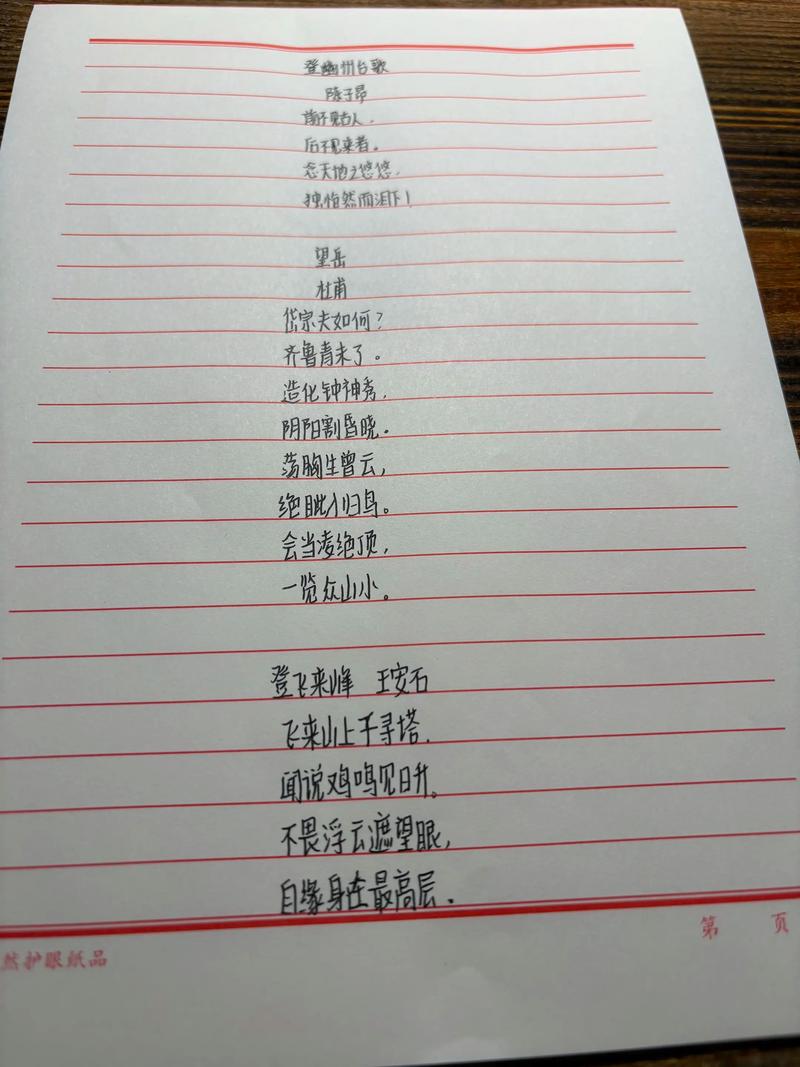 登幽州台歌
陈子昂
前不见古人，
后不见来者。
念天地之悠悠，
独怆然而泪下！
望岳
杜甫
岱宗夫如何？
齐鲁青未了。
造化钟神秀，
阴阳割昏晓。
荡胸生曾云，
绝眦入归鸟。
会当凌绝顶，
一览众山小。
登飞来峰 王安石
飞来山上千寻塔，
闻说鸡鸣见日升。
不畏浮云遮望眼，
自缘身在最高层。
第 页
然护眼纸品